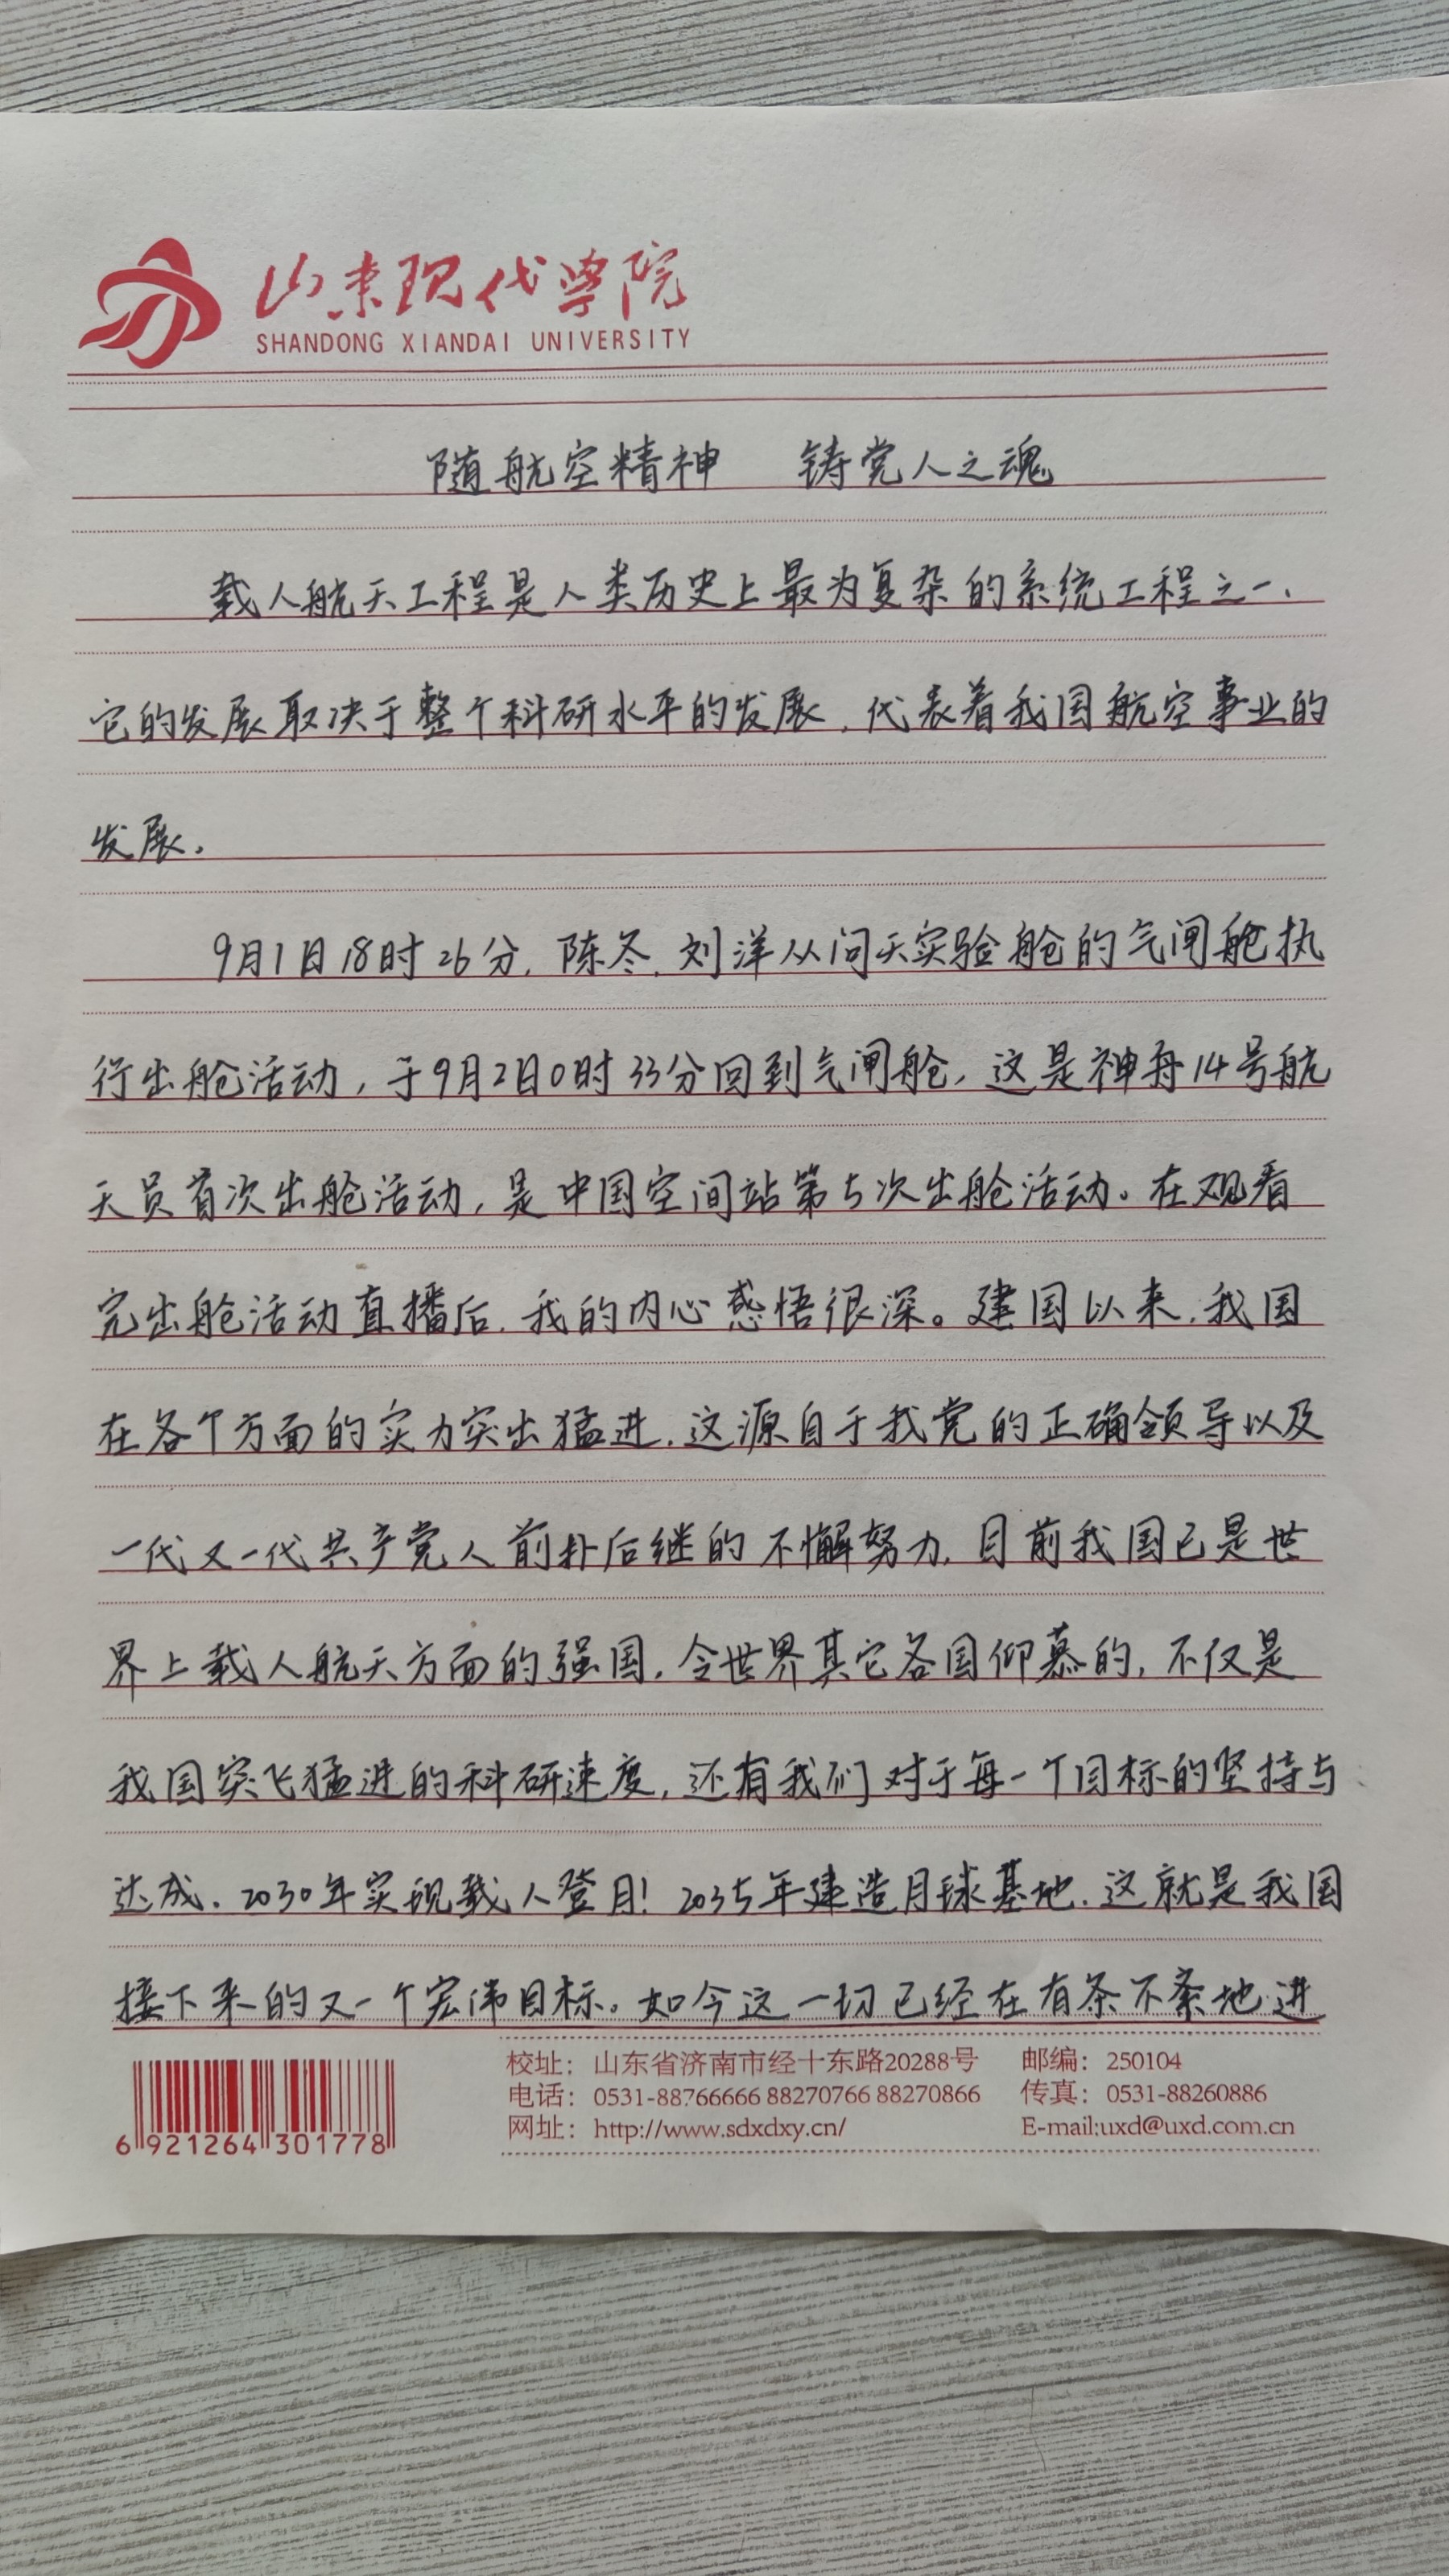 山东现代学院
SHANDONG XIANDAI UNIVERSITY
随航空精神 铸党人之魂
载人航天工程是人类历史上最为复杂的系统工程之一、
它的发展取决于整个科研水平的发展,代表着我国航空事业的
发展.
9月1日18时26分,陈冬,刘洋从问天实验舱的气闸舱执
行出舱活动,于9月2日0时33分回到气闸舱,这是神舟14号航
天员首次出舱活动,是中国空间站第5次出舱活动。在观看
完出舱活动直播后,我的内心感悟很深。建国以来,我国
在各个方面的实力突出猛进,这源自于我党的正确领导以及
一代又一代共产党人前扑后继的不懈努力,目前我国已是世
界上载人航天方面的强国,令世界其它各国仰慕的,不仅是
我国突飞猛进的科研速度,还有我们对于每一个目标的坚持与
达成、2030年实现载人登月!2035年建造月球基地,这就是我国
接下来的又一个宏伟目标。如今这一切已经在有条不紊地进
6 921264 301778
校址:山东省济南市经十东路20288号 邮编:250104
电话:0531-88766666 88270766 88270866 传真:0531-88260886
网址:http://www.sdxdxy.cn/ E-mail:uxd@uxd.com.cn